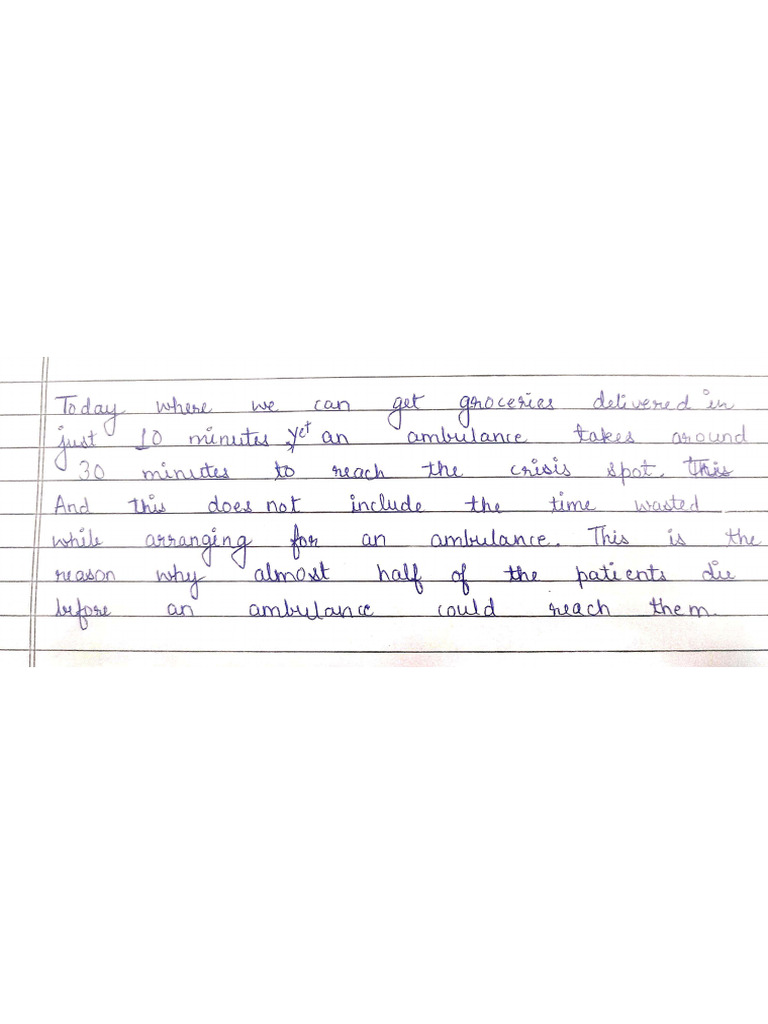 Today where we can get groceries delivered in
just 10 minutes, yet an ambulance takes around
30 minutes to reach the crisis spot. This
And this does not include the time wasted
while arranging for an ambulance. This is the
reason why almost half of the patients die
before an ambulance could reach them.